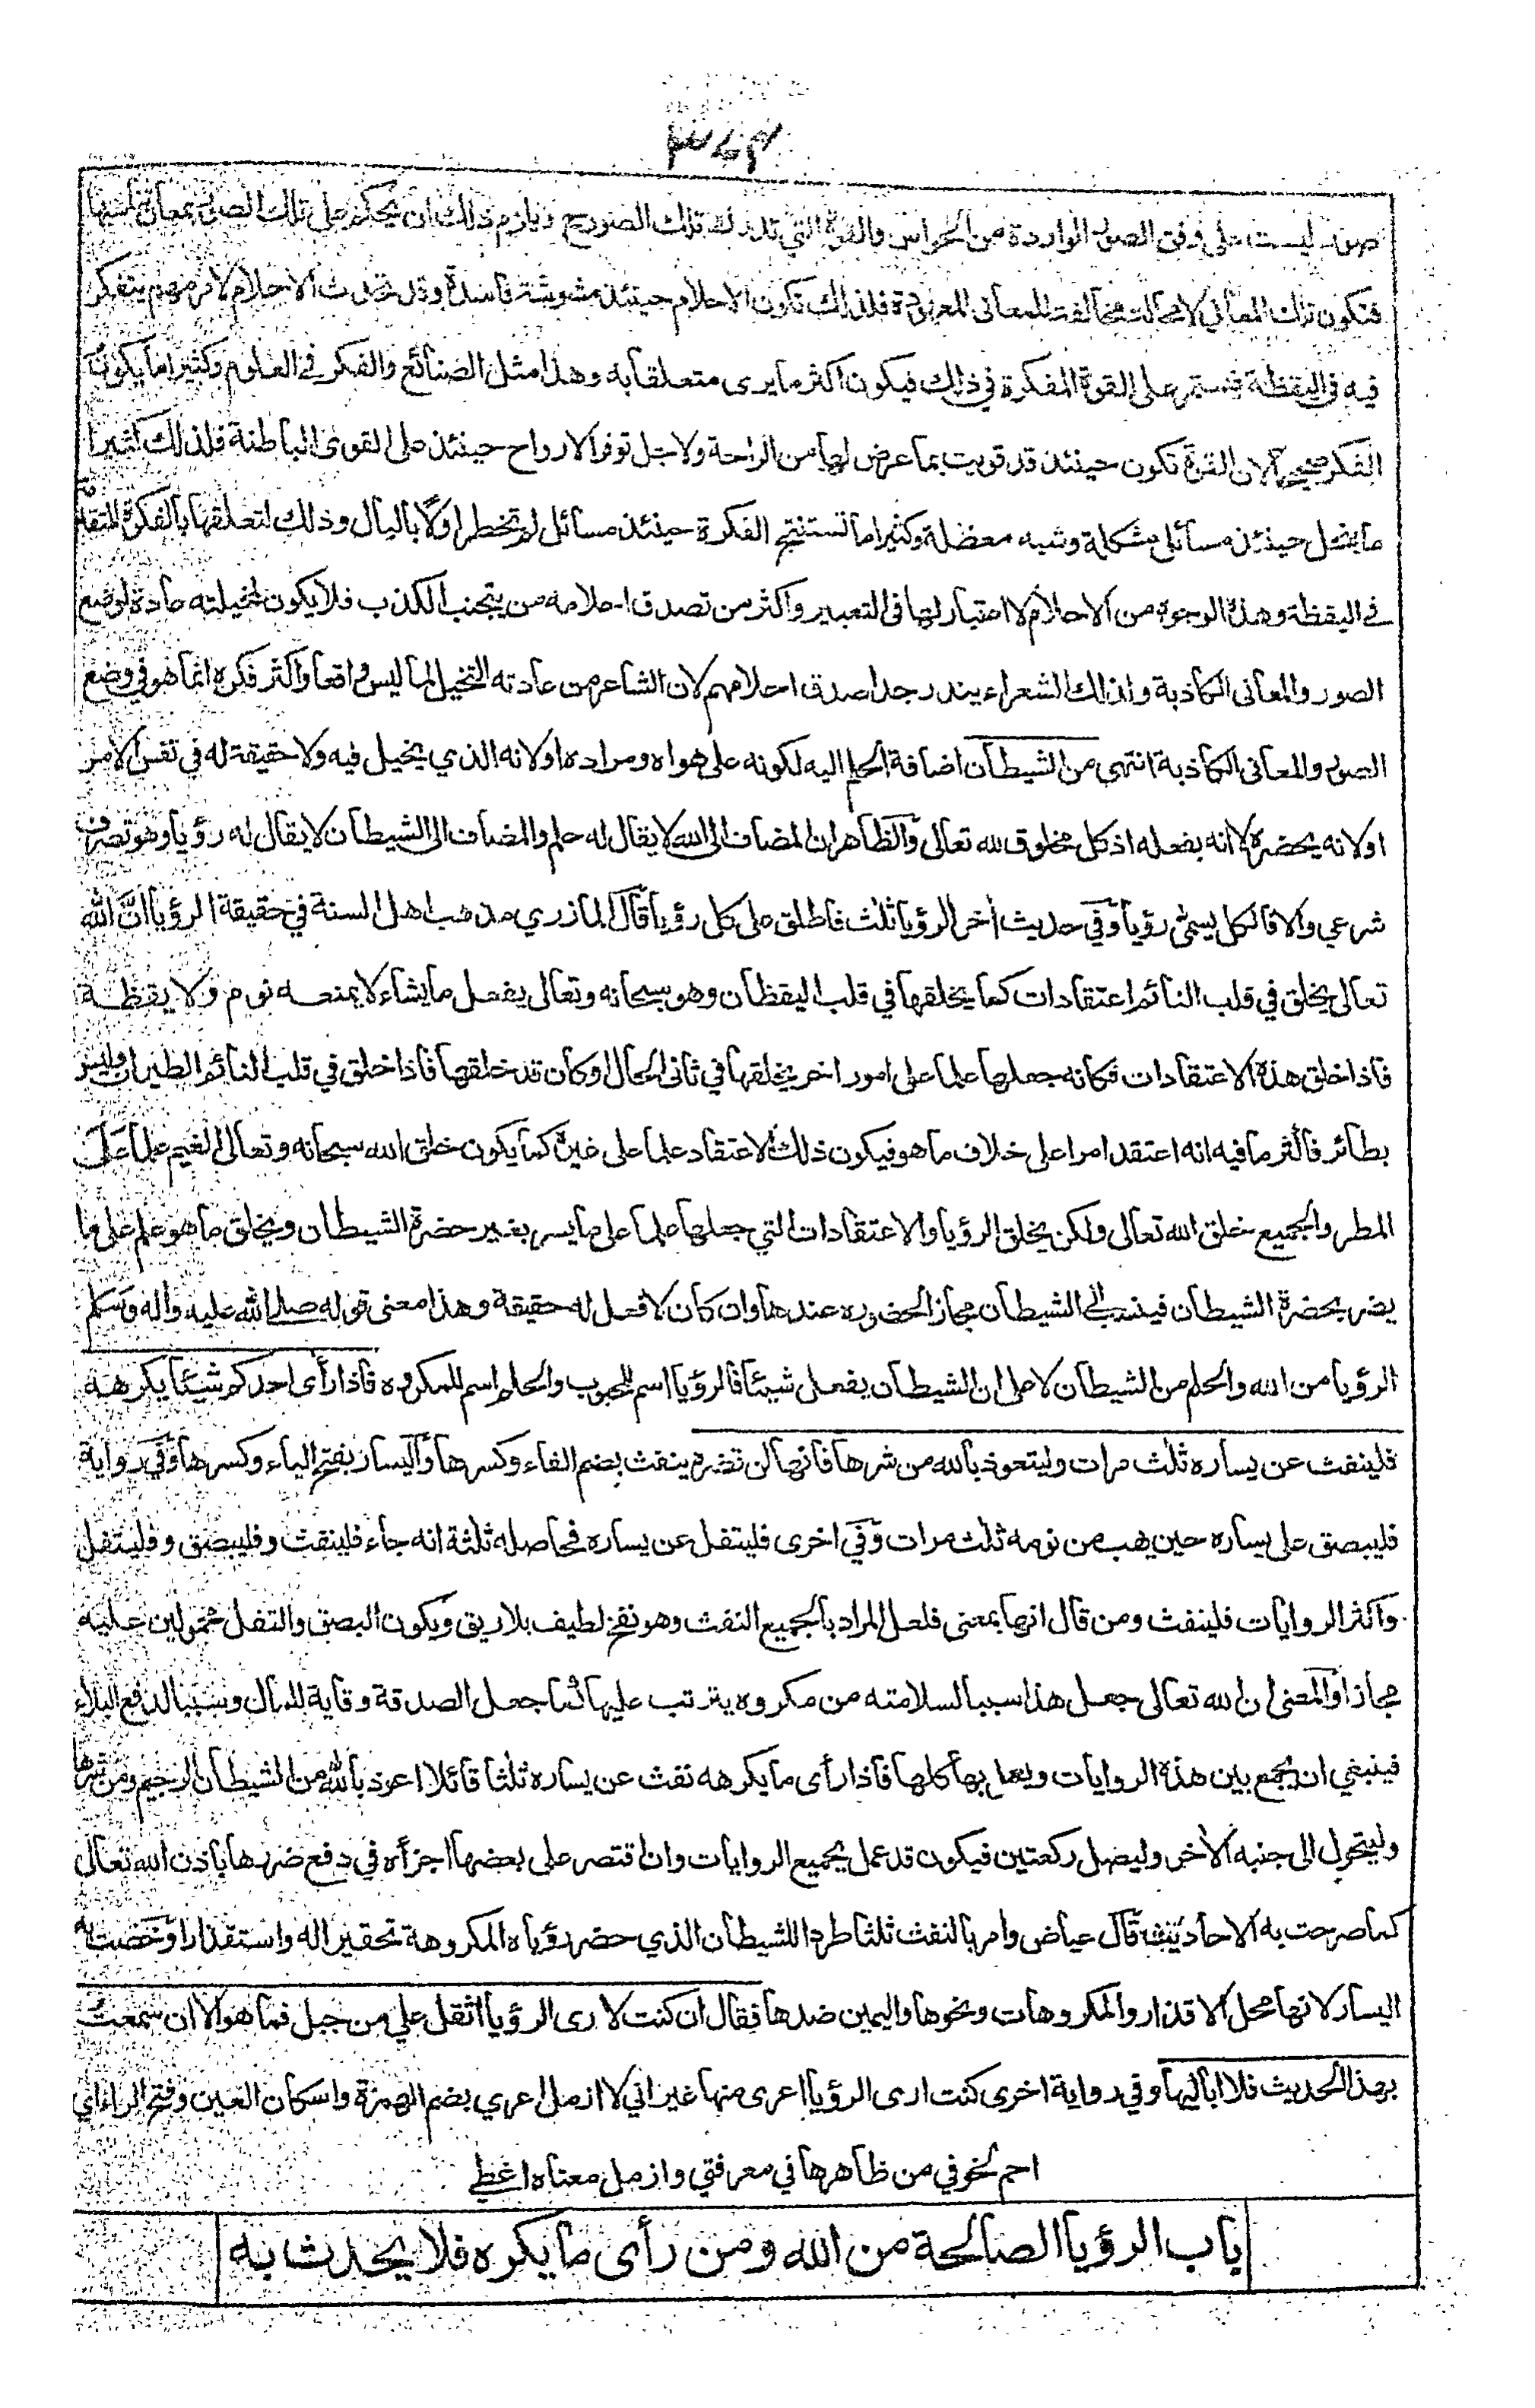 ٣٦٩
صور ليست على وفق الصور الواردة من الحواس والقوة التي تدرك تلك الصور ويلزم ذلك ان يحكم على تلك الصور بمعان تناسبها
فتكون تلك المعاني لا محالة مخالفة للمعاني المعهودة فلذلك تكون الاحلام حينئذ مشوشة فاسدة وقد تحدث الاحلام لامر مهم يتفكر
فيه في اليقظة فيستمر على القوة المفكرة في ذلك فيكون اكثر ما يرى متعلقا به وهذا مثل الصنائع والفكر في العلوم وكثيرا ما يكون
الفكر صحيحا لان القوة تكون حينئذ قد قويت بما عرض لها من الراحة ولاجل توفر الارواح حينئذ على القوى الباطنة فلذلك كثيرا
ما ينحل حينئذ مسائل مشكلة وشبه معضلة وكثيرا ما تستنتج الفكرة حينئذ مسائل لم تخطر اولا بالبال وذلك لتعلقها بالفكرة المتقدمة
في اليقظة وهذه الوجوه من الاحلام لا اعتبار لها في التعبير واكثر من تصدق احلامه من يتجنب الكذب فلا يكون لمخيلته عادة لوضع
الصور والمعاني الكاذبة ولذلك الشعراء يندر جدا صدق احلامهم لان الشاعر من عادته التخيل لما ليس واقعا واكثر فكره انما هو في وضع
الصور والمعاني الكاذبة انتهى من الشيطان اضافة الحلم اليه لكونه على هواه ومراده او لانه الذي يخيل فيه ولا حقيقة له في نفس الامر
او لانه يحضره لا انه بفعله اذ كل مخلوق لله تعالى والظاهر ان المضاف الى الله لا يقال له حلم والمضاف الى الشيطان لا يقال له رؤيا وهو تصرف
شرعي والا فالكل يسمى رؤيا وفي حديث اخر الرؤيا ثلث فاطلق على كل رؤيا قال المازري مذهب اهل السنة في حقيقة الرؤيا ان الله
تعالى يخلق في قلب النائم اعتقادات كما يخلقها في قلب اليقظان وهو سبحانه وتعالى يفعل ما يشاء لا يمنعه نوم ولا يقظة
فاذا خلق هذه الاعتقادات فكانه جعلها علما على امور اخر يخلقها في ثاني الحال او كان قد خلقها فاذا خلق في قلب النائم الطيران وليس
بطائر فاكثر ما فيه انه اعتقد امرا على خلاف ما هو فيكون ذلك الاعتقاد علما على غيره كما يكون خلق الله سبحانه وتعالى الغيم علما على
المطر والجميع خلق الله تعالى ولكن يخلق الرؤيا والاعتقادات التي جعلها علما على ما يسر بغير حضرة الشيطان ويخلق ما هو علم على ما
يضر بحضرة الشيطان فينسب الى الشيطان مجازا لحضوره عندها وان كان لا فعل له حقيقة وهذا معنى قوله صلى الله عليه واله وسلم
الرؤيا من الله والحلم من الشيطان لا على ان الشيطان يفعل شيئا فالرؤيا اسم للمحبوب والحلم اسم للمكروه فاذا رأى احدكم شيئا يكرهه
فلينفث عن يساره ثلث مرات وليتعوذ بالله من شرها فانها لن تضره ينفث بضم الفاء وكسرها واليسار بفتح الياء وكسرها وفي رواية
فليبصق على يساره حين يهب من نومه ثلث مرات وفي اخرى فليتفل عن يساره فحاصله ثلثة انه جاء فلينفث وفليبصق وفليتفل
واكثر الروايات فلينفث ومن قال انها بمعنى فلعل المراد بالجميع النفث وهو نفخ لطيف بلا ريق ويكون البصق والتفل محمولين عليه
مجازا والمعنى ان الله تعالى جعل هذا سببا لسلامته من مكروه يترتب عليها كما جعل الصدقة وقاية للمال وسببا لدفع البلاء
فينبغي ان يجمع بين هذه الروايات ويعمل بها كلها فاذا رأى ما يكرهه نفث عن يساره ثلثا قائلا اعوذ بالله من الشيطان الرجيم ومن شرها
وليتحول الى جنبه الاخر وليصل ركعتين فيكون قد عمل بجميع الروايات وان اقتصر على بعضها اجزأه في دفع ضررها باذن الله تعالى
كما صرحت به الاحاديث قال عياض وامر بالنفث ثلثا طردا للشيطان الذي حضر رؤياه المكروهة تحقيرا له واستقذارا وخصت به
اليسار لانها محل الاقذار والمكروهات ونحوها واليمين ضدها فقال ان كنت لارى الرؤيا اثقل علي من جبل فما هو الا ان سمعت
بهذا الحديث فلا اباليها وفي رواية اخرى كنت ارى الرؤيا اعرى منها غير اني لا ازمل اعري بضم الهمزة واسكان العين وفتح الراء اي
احم لخوفي من ظاهرها في معرفتي وازمل معناه اغطي
باب الرؤيا الصالحة من الله ومن رأى ما يكره فلا يحدث به